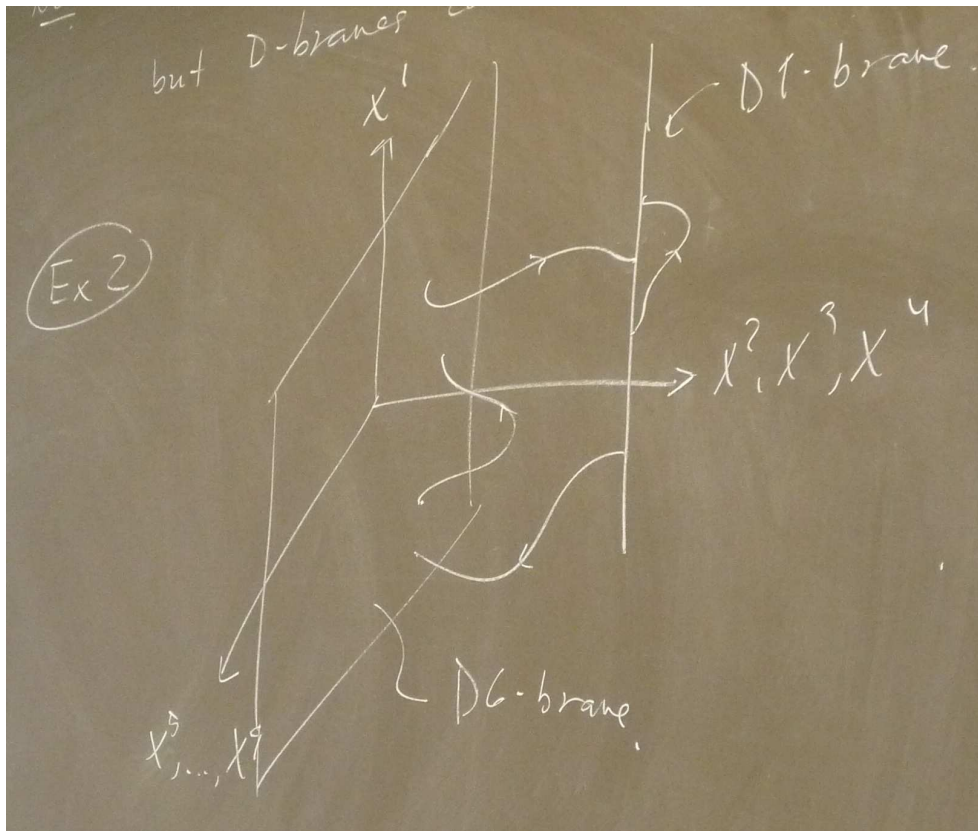 but D-branes
X¹
D1-brane.
Ex 2
X², X³, X⁴
D6-brane.
X⁵, ..., X⁹